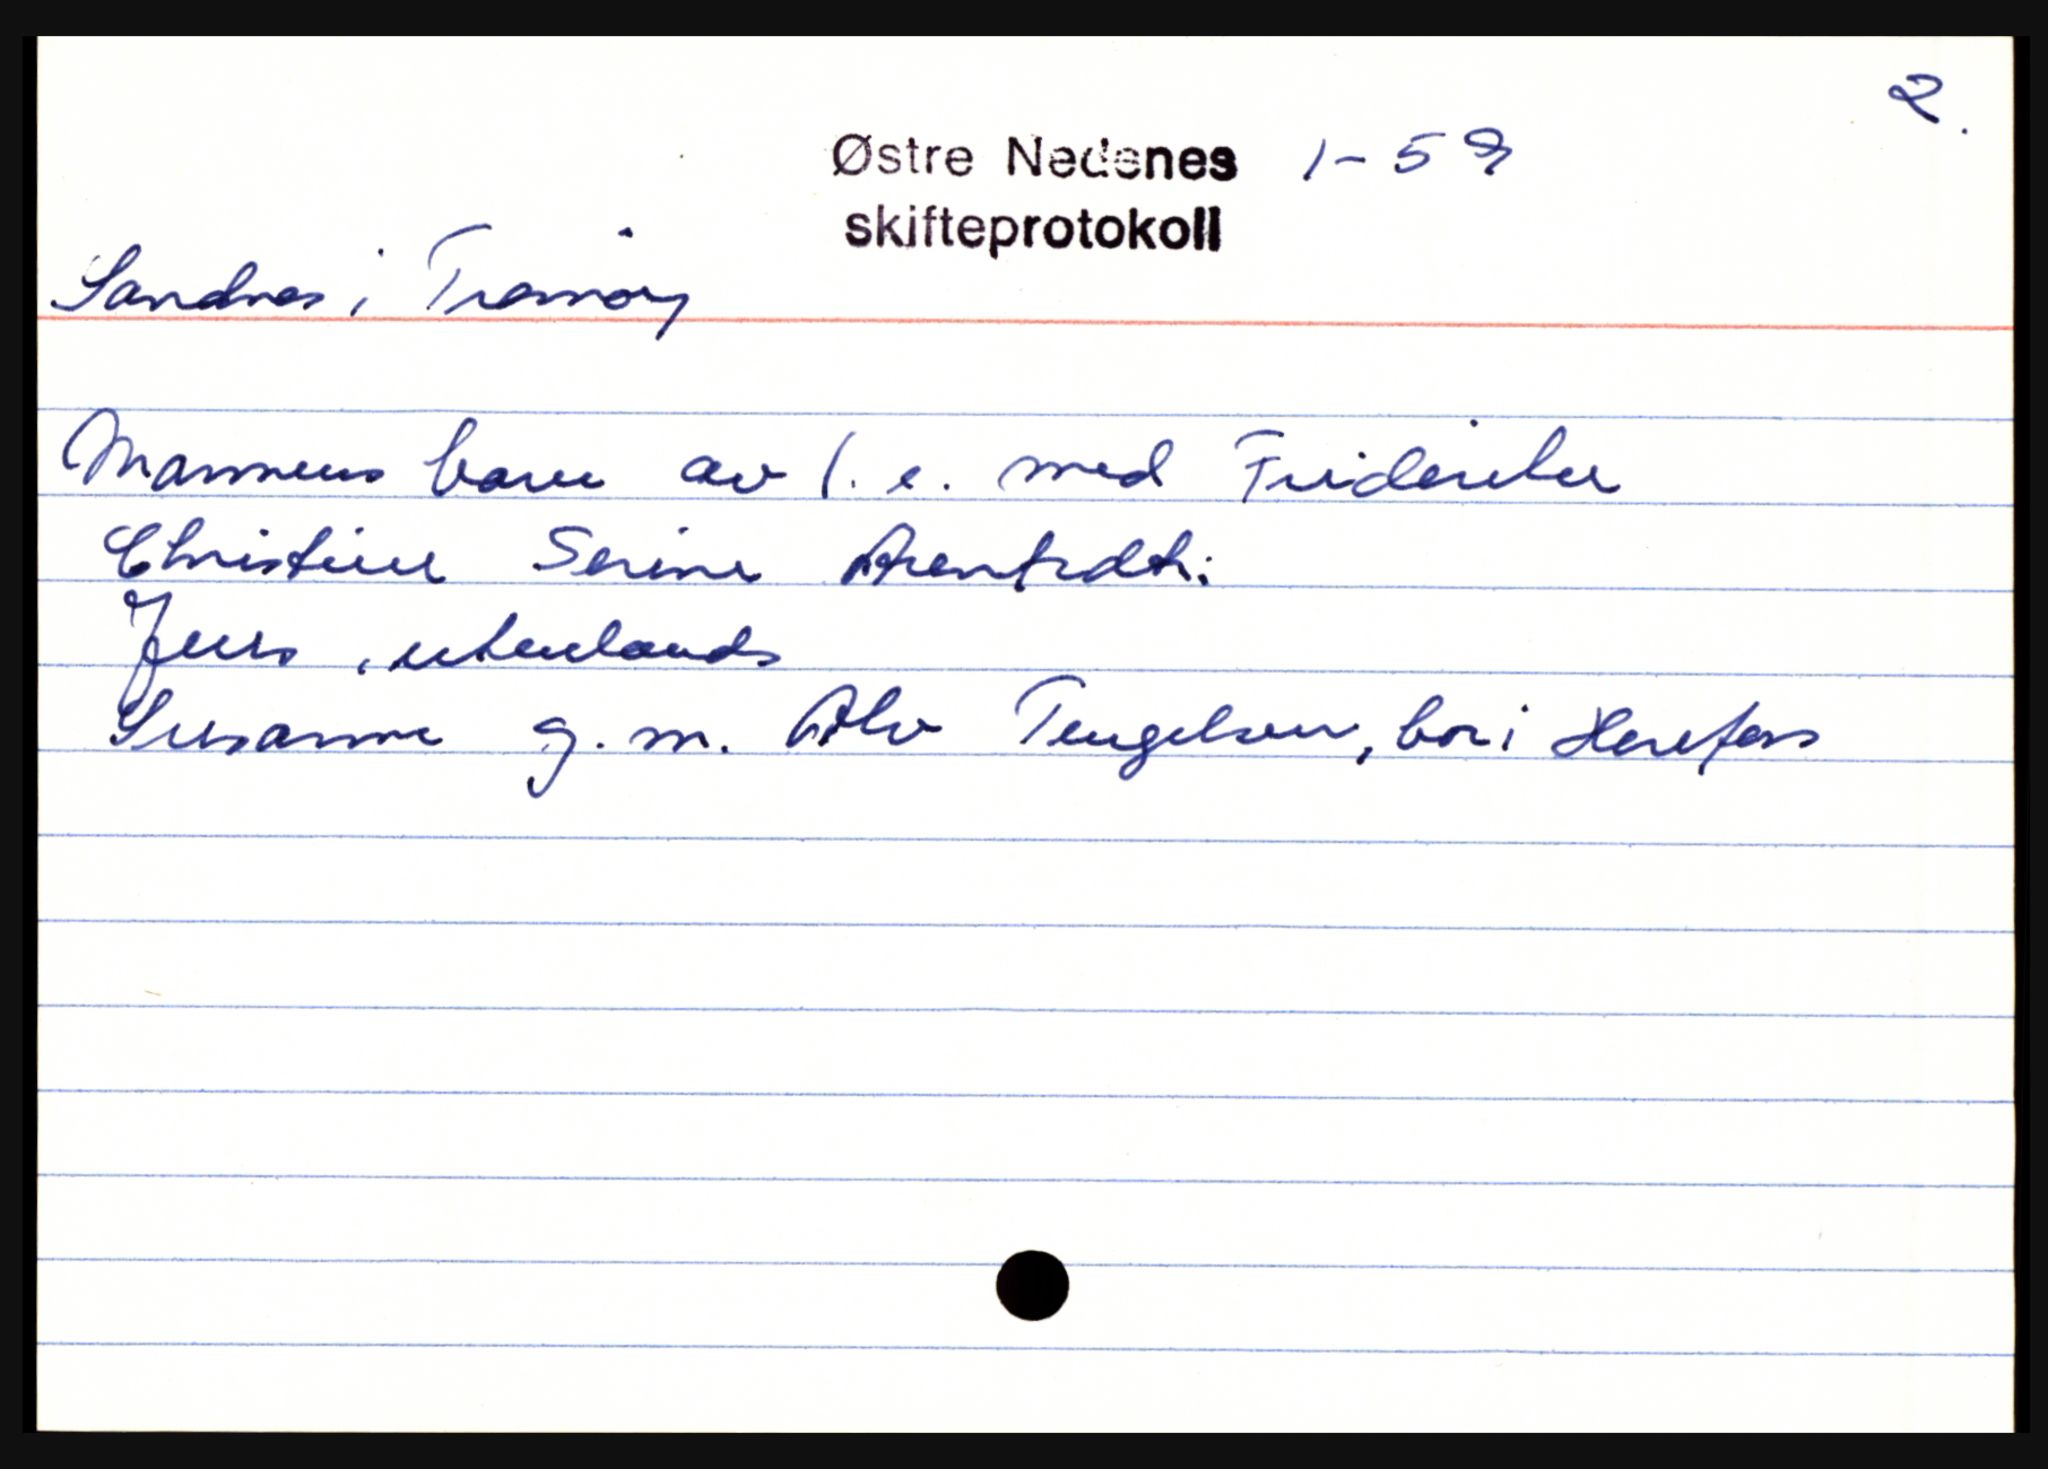 2.
Østre Nedenes 1-59
skifteprotokoll
Sandnes i Tromøy
Mannens barn av 1. e. med Friderike
Christine Serine Arentsdtr.
Jens, utenlands
Susanne g. m. Alv Tengelsen, bor i Herefoss